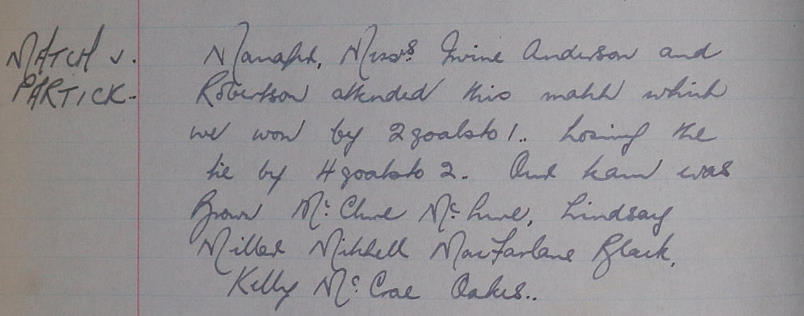 MATCH v.
PARTICK.
Manager, Messrs Irvine Anderson and
Robertson attended this match which
we won by 2 goals to 1.. Losing the
tie by 4 goals to 2. Our team was
Brown McClure McLure, Lindsay
Miller Mitchell MacFarlane Black,
Kelly McCrae Oakes..